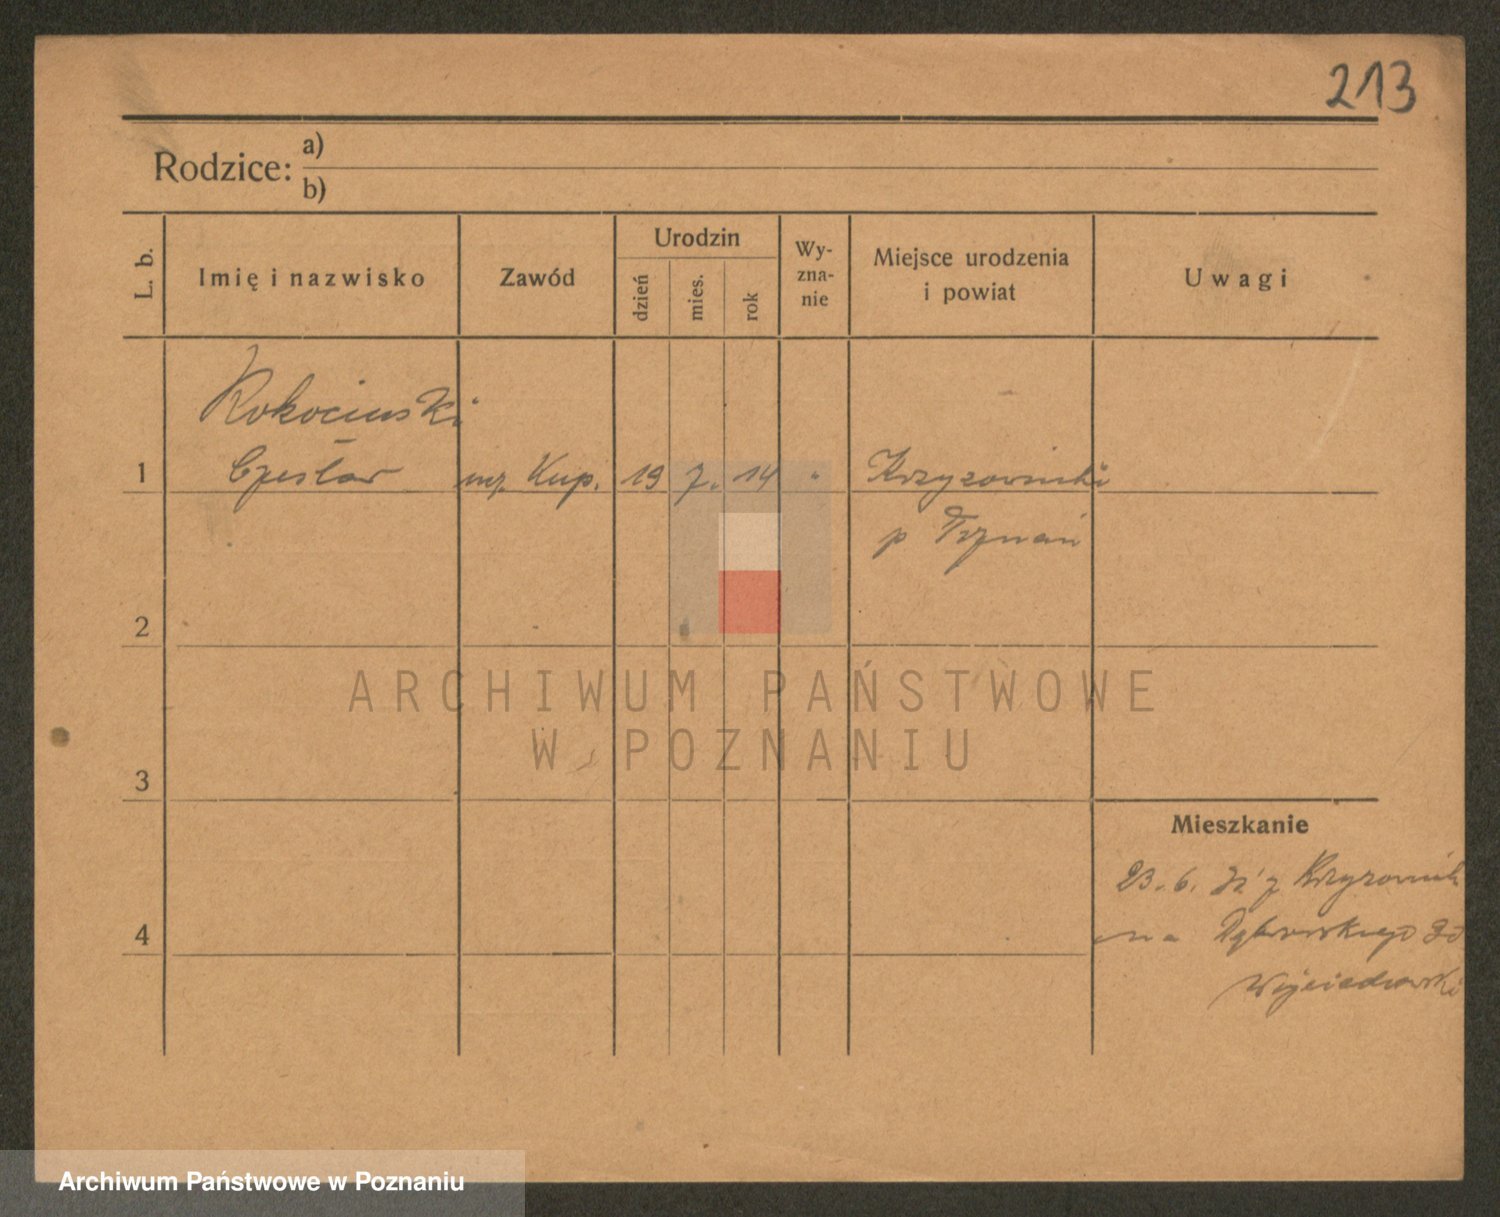 213
Rodzice: a)
b)
L. b.
Imię i nazwisko
Zawód
Urodzin
dzień
mies.
rok
Wy-
zna-
nie
Miejsce urodzenia
i powiat
Uwagi
Rokociński
1 Czesław Kup. 19 7. 14 " Krzyżowniki
p Poznań
2
3
Mieszkanie
23. 6. z
4
na Dąbrowskiego
ARCHIWUM PAŃSTWOWE
W POZNANIU
Archiwum Państwowe w Poznaniu